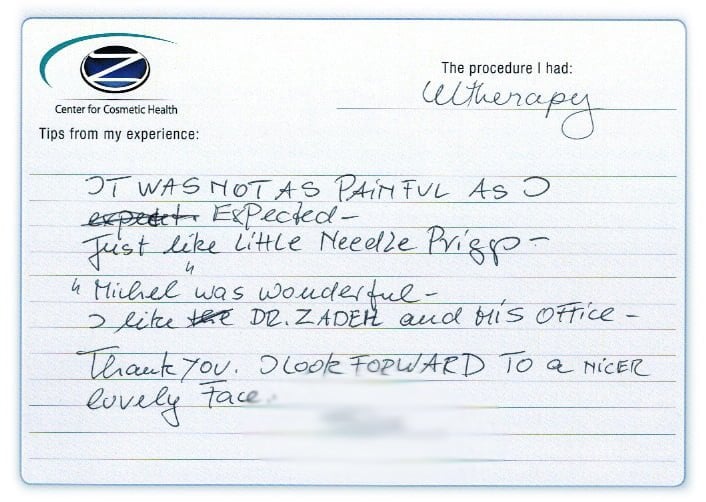 Z
Center for Cosmetic Health
The procedure I had:
Ultherapy
Tips from my experience:
IT WAS NOT AS PAINFUL AS I
expect Expected -
Just like Little Needle Priggs -
"Michel" was wonderful -
I like the DR. ZADEH and HIS OFFICE -
Thank You. I look FORWARD TO a NICER
lovely Face.